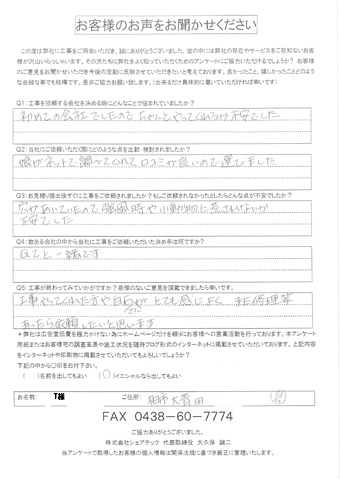 お客様のお声をお聞かせください
この度は弊社に工事をご用命いただき、誠にありがとうございました。世の中には弊社の存在やサービスをご存知ないお客
様が沢山いらっしゃいます。その方たちに弊社をよく知っていただくためのアンケートにご協力いただけるでしょうか？ お客
様のご意見をお聞かせいただき今後の活動に反映させていただきたいと考えております。良かったこと、嬉しかったことどのよう
な些細な事でも結構です。是非ご協力お願い致します。（出来るだけ具体的に書いていただければ幸いです）
Q1：工事を依頼する会社を決める時にどんなことで悩まれていましたか？
初めての会社でしたので、ちゃんとやってくれるか不安でした
Q2：当社にご依頼いただく際にどのような点を比較・検討されましたか？
娘がネットで調べてくれて口コミが良いので選びました
Q3：お見積り提出後すぐに工事をご依頼されましたか？もしご依頼されなかったとしたらどんな点が不安でしたか？
穴があいていたので強風時や小動物に荒されないか
不安でした
Q4：数ある会社の中から当社に工事をご依頼いただいた決め手は何ですか？
Q2と一緒です
Q5：工事が終わってみていかがですか？忌憚のないご意見を頂戴できましたら幸いです。
工事やってくれた方や白石さんがとても感じよく また修理等
あったら依頼したいと思います
＊弊社は広告宣伝費を極力かけない為にホームページだけを頼りにお客様への営業活動を行っております。本アンケート
用紙またはお客様宅の調査風景や施工状況を随時ブログ形式のインターネットに掲載させていただいております。上記内容
をインターネットや印刷物に掲載させていただいてもよろしいでしょうか？
下記の中から〇印をお付け下さい。
（　）名前を出してもよい　（〇）イニシャルなら出してもよい
お名前： T様 ご住所： 柏市大青田
FAX 0438-60-7774
ご協力ありがとうございました。
株式会社シェアテック 代表取締役 大久保 誠二
当アンケートで取得したお客様の個人情報は関係法規に基づき厳正に管理いたします。